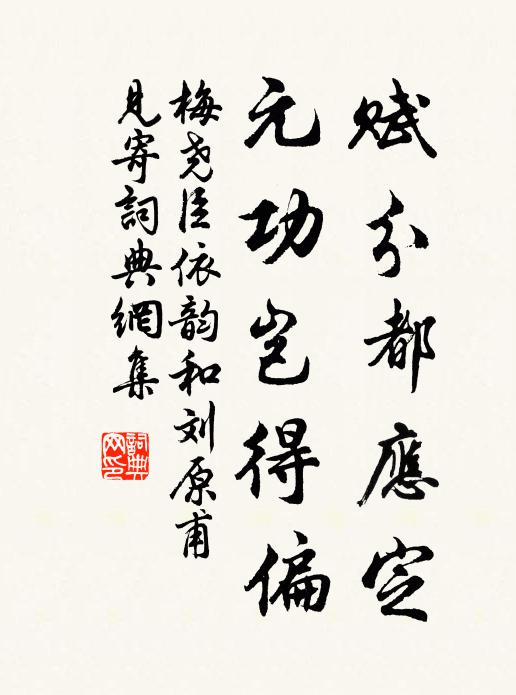 赋分都應定
元功岂得偏
梅尧臣依韵和刘原甫
見寄詞典網集
詞典网印